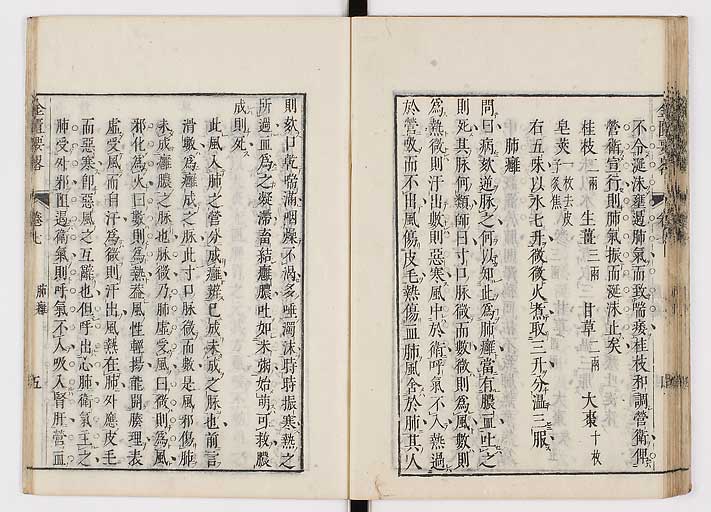 不令涎沫壅遏肺氣而致喘痿桂枝和調營衛俾
營衛宣行則肺氣振而涎沫止矣
桂枝 二兩 生薑 三兩 甘草 二兩 大棗 十枚
皂莢 一枚去皮子炙焦
右五味以水七升微微火煮取三升分溫三服
肺癰
問曰病欬逆脉之何以知此為肺癰當有膿血吐之
則死其脉何類師曰寸口脉微而數微則為風數則
為熱微則汗出數則惡寒風中於衛呼氣不入熱過
於營吸而不出風傷皮毛熱傷血脉風舍於肺其人
則欬口乾喘滿咽燥不渴多唾濁沫時時振寒熱之
所過血為之凝滯畜結癰膿吐如米粥始萌可救膿
成則死
此風入肺之營分成癰辭已成未成之脉也前言
滑數為癰成之脉此寸口脉微而數是風邪傷肺
未成癰膿之脉也脉微乃肺虛受風曰微則為風
邪化為火曰數則為熱葢風性輕揚能開腠理表
虛受風而自汗為微則汗出風熱在肺外應皮毛
而惡寒卽惡風之互辭也但呼出心肺衛氣主之
肺受外邪阻遏衛氣則呼氣不入吸入腎肝營血
金匱要略
卷七
肺癰
五